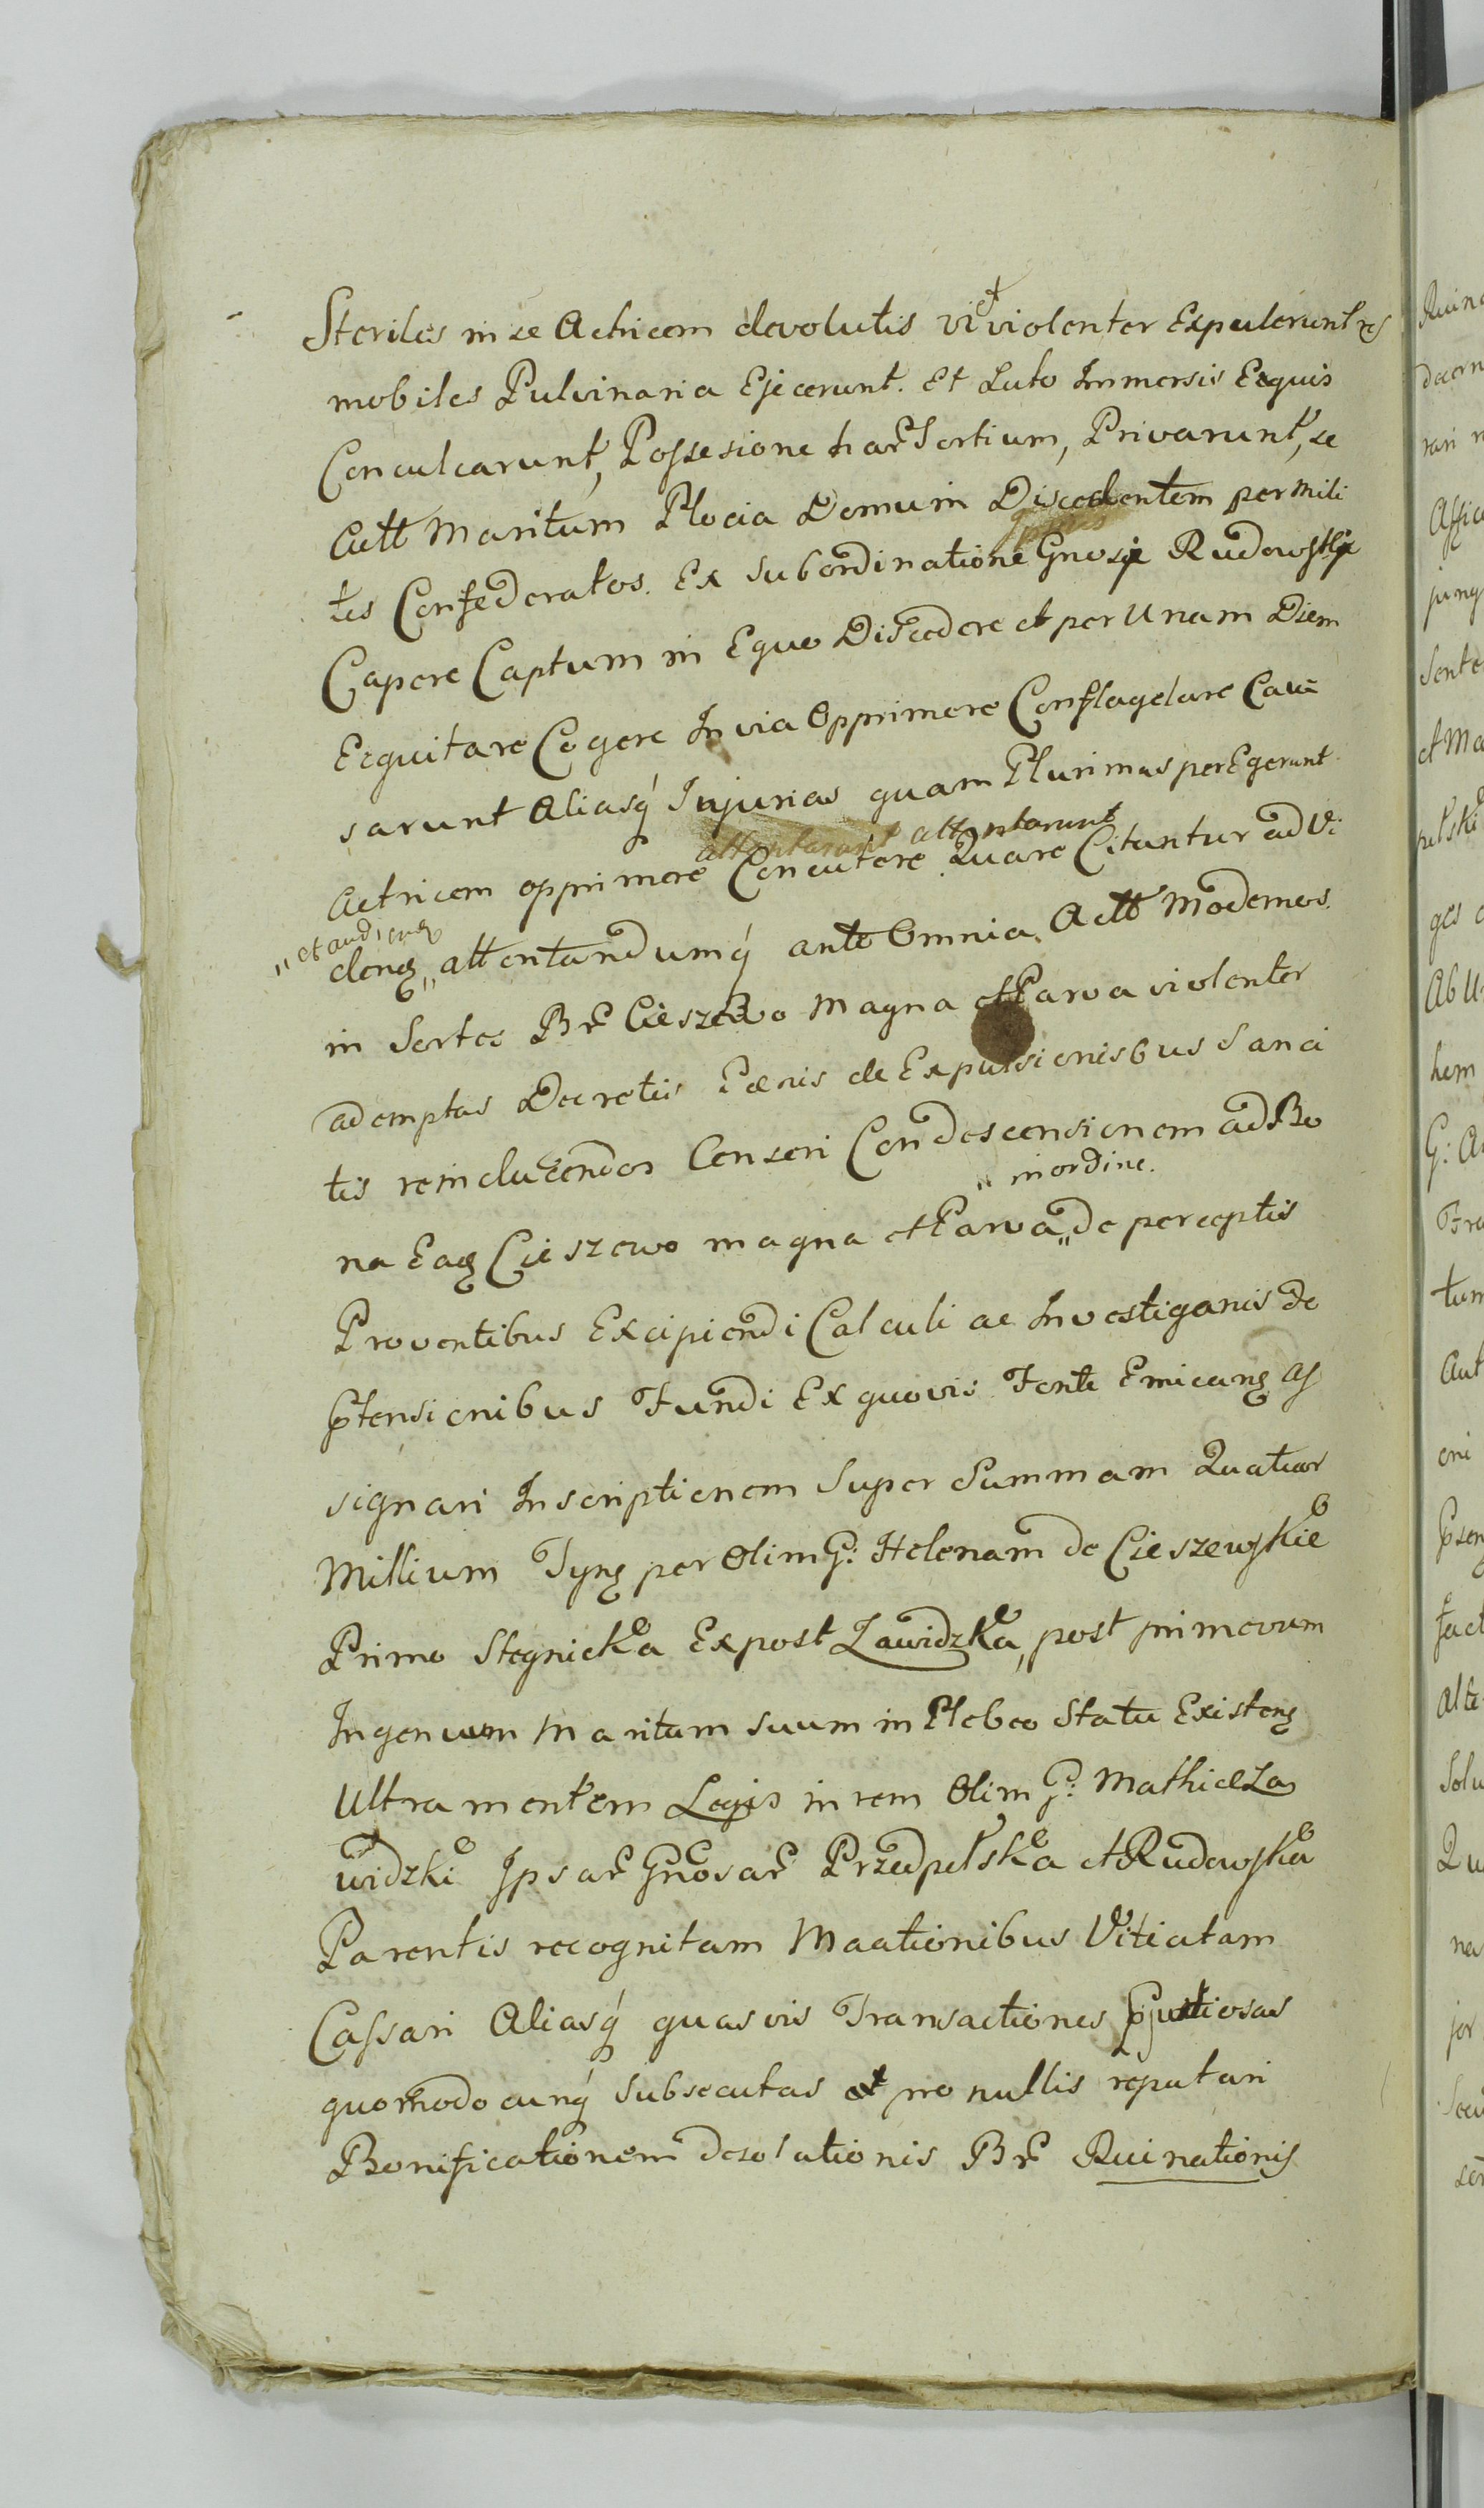 Steriles in se Actricem devolutis vi et violenter Expulerunt res
mobiles Pulvinaria Ejecerunt. Et Luto Immersis Eequis
Conculcarunt, Possesione har Sortium, Privarunt, se
Actt Maritum Plocia Domum Discedentem per Mili
tes Confederatos. Ex Subordinatione Gnosi Rudowski
Capere Captum in Equo Discedere et per Unam Diem
Eequitare Cogere In via Opprimere Conflagelare Cau
sarunt Aliasq Injurias quam Plurimas perEgerunt
attentarunt attentarunt
Actricem opprimere Concutere Quare Citantur ad Vi
„et audien
dens „ attentandumq ante Omnia Actt Modernos
in Sortes Br Cieszewo Magna et Parva violenter
ademptas Decretis Pœnis de Expulsionisbus Sanci
tis reinducendos Censeri Condescensionem ad Bo
„ in ordine.
na Eaq Cieszewo magna et Parva „ de perceptis
Proventibus Excipiendi Calculi ac Investiganis de
Ptensionibus Fundi Ex quovis Fonte Emicans As
signari Inscriptionem Super Summam Quatuor
Millium Tyns per Olim G: Helenam de Cieszewskie
Primo Stegnicka Expost Zawidzka, post primevum
Ingenuum Maritum suum in Plebeo Statu Existens
Ultra mentem Legis in rem Olim G: Mathiæ Za
widzki Ipsar Gnosar Przedpełska et Rudowska
Parentis recognitam Maationibus Vitiatam
Cassari Aliasq quasvis Transactiones Pjuditiosas
quomodocunq Subsecutas et pro nullis reputari
Bonificationem desolationis Br Ruinationis